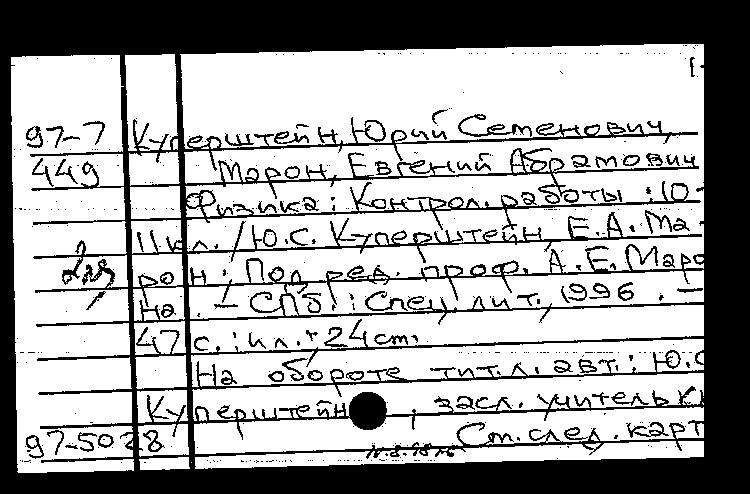 97-7 Куперштейн, Юрий Семенович,
449 Марон, Евгений Абрамович
Физика : Контрол. работы : 10-
11 кл. / Ю.С. Куперштейн, Е.А. Ма-
рон ; Под ред. проф. А.Е. Маро
на. – СПб. : Спец. лит., 1996. –
47 с. : ил. ; 24 см.
На обороте тит. л. авт.: Ю.С
Куперштейн , засл. учитель
97-5028 Ст. след. карт